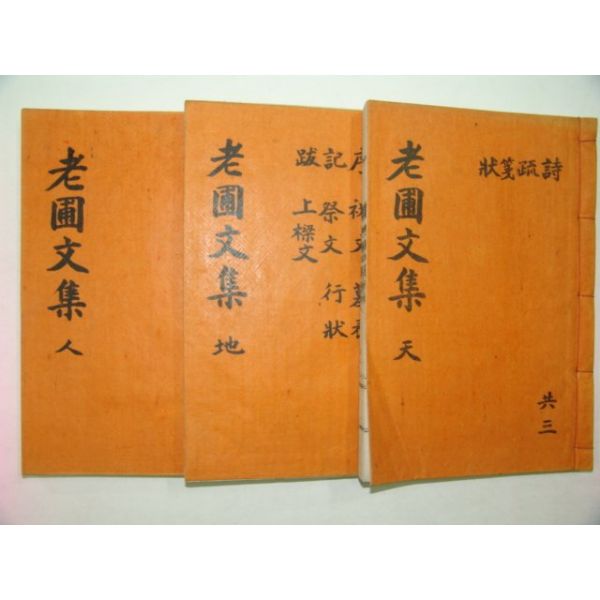 詩疏箋狀
共三
老圃文集 天
序
記 祭文 行狀
跋 上樑文
老圃文集 地
老圃文集 人